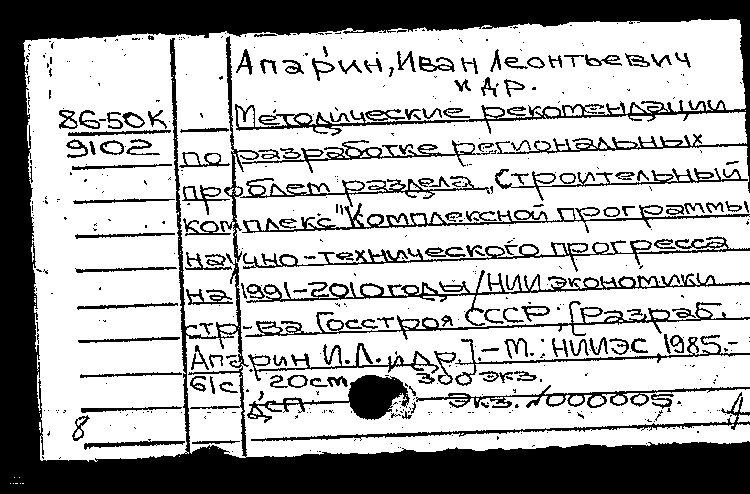 Апарин, Иван Леонтьевич
и др.
86-50К Методические рекомендации
9102 по разработке региональных
проблем раздела „Строительный
комплекс" Комплексной программы
научно-технического прогресса
на 1991-2010 годы / НИИ экономики
стр-ва Госстроя СССР; [Разраб.
Апарин И.Л. и др.]. - М.: НИИЭС, 1985.-
61с. 20см. 300 экз.
ДСП Экз. №000005.
8